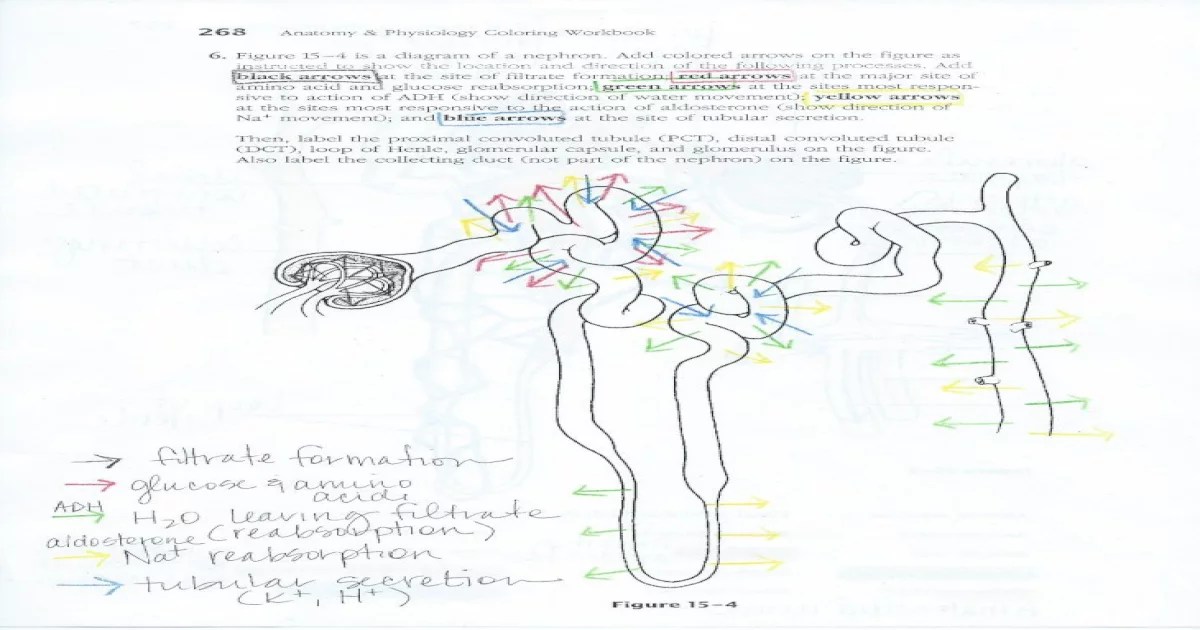 268 Anatomy & Physiology Coloring Workbook
6. Figure 15–4 is a diagram of a nephron. Add colored arrows on the figure as
instructed to show the location and direction of the following processes. Add
black arrows at the site of filtrate formation; red arrows at the major site of
amino acid and glucose reabsorption; green arrows at the sites most respon-
sive to action of ADH (show direction of water movement); yellow arrows
at the sites most responsive to the action of aldosterone (show direction of
Na+ movement); and blue arrows at the site of tubular secretion.
Then, label the proximal convoluted tubule (PCT), distal convoluted tubule
(DCT), loop of Henle, glomerular capsule, and glomerulus on the figure.
Also label the collecting duct (not part of the nephron) on the figure.
filtrate formation
glucose & amino
acids
ADH
H2O leaving filtrate
aldosterone (reabsorption)
Na+ reabsorption
tubular secretion
(K+, H+)
Figure 15–4